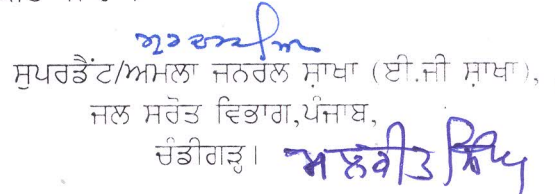 ਸੁਪਰਡੈਂਟ/ਅਮਲਾ ਜਨਰਲ ਸ਼ਾਖਾ (ਈ.ਜੀ ਸ਼ਾਖਾ),
ਜਲ ਸਰੋਤ ਵਿਭਾਗ,ਪੰਜਾਬ,
ਚੰਡੀਗੜ੍ਹ।